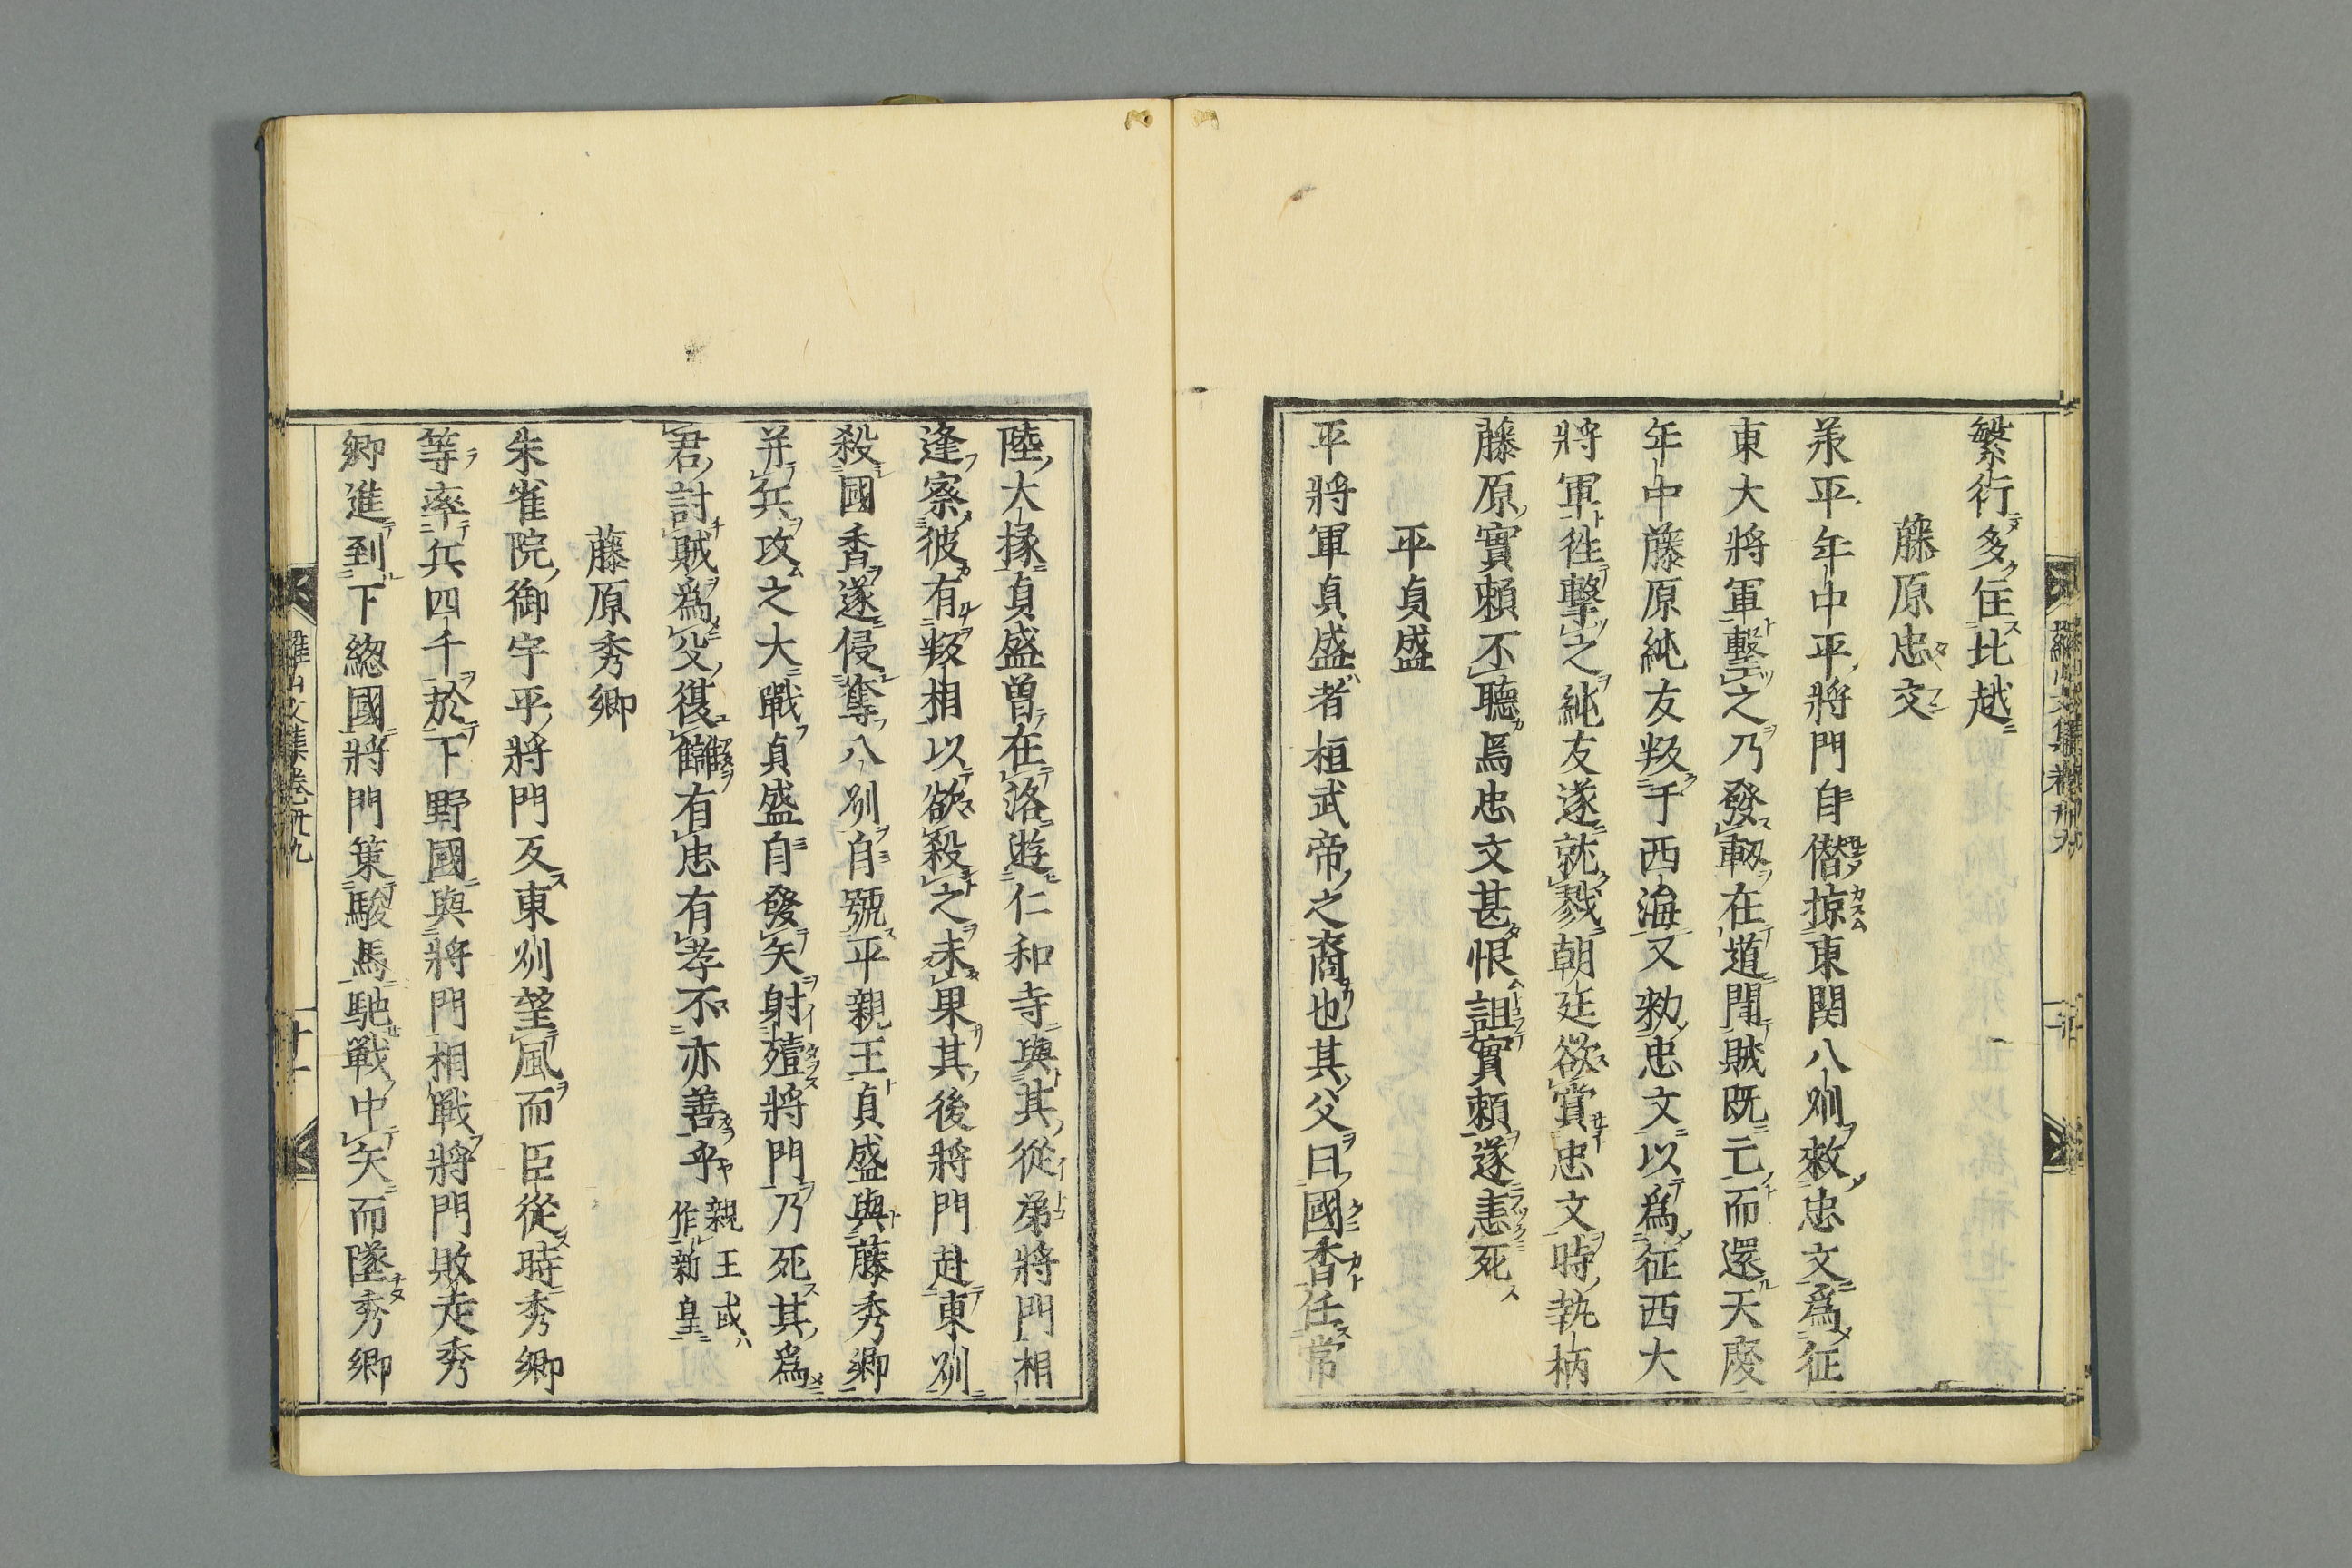 繁衍多住北越
藤原忠文
承平年中平將門自僭掠東関八州敕忠文爲征
東大將軍擊之乃發軔在道聞賊既亡而還天慶
年中藤原純友叛于西海又勑忠文以爲征西大
將軍徃擊之純友遂就戮朝廷欲賞忠文時執柄
藤原實頼不聽焉忠文甚恨詛實頼遂恚死
平貞盛
平將軍貞盛者桓武帝之裔也其父曰國香任常
陸大掾貞盛曽在洛遊仁和寺與其從弟將門相
逢察彼有叛相以欲殺之未果其後將門赴東州
殺國香遂侵奪八州自號平親王貞盛與藤秀卿
并兵攻之大戰貞盛自發矢射殪將門乃死其爲
君討賊爲父復讎有忠有孝不亦善乎親王或作新皇
藤原秀卿
朱雀院御宇平將門反東州望風而臣從時秀卿
等率兵四千於下野國與將門相戰將門敗走秀
卿進到下総國將門策駿馬馳戰中矢而墜秀卿
羅山文集卷卅九
十一